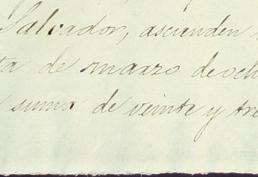 Salvador, ascienden
ta de marzo de och
suma de veinte y tre